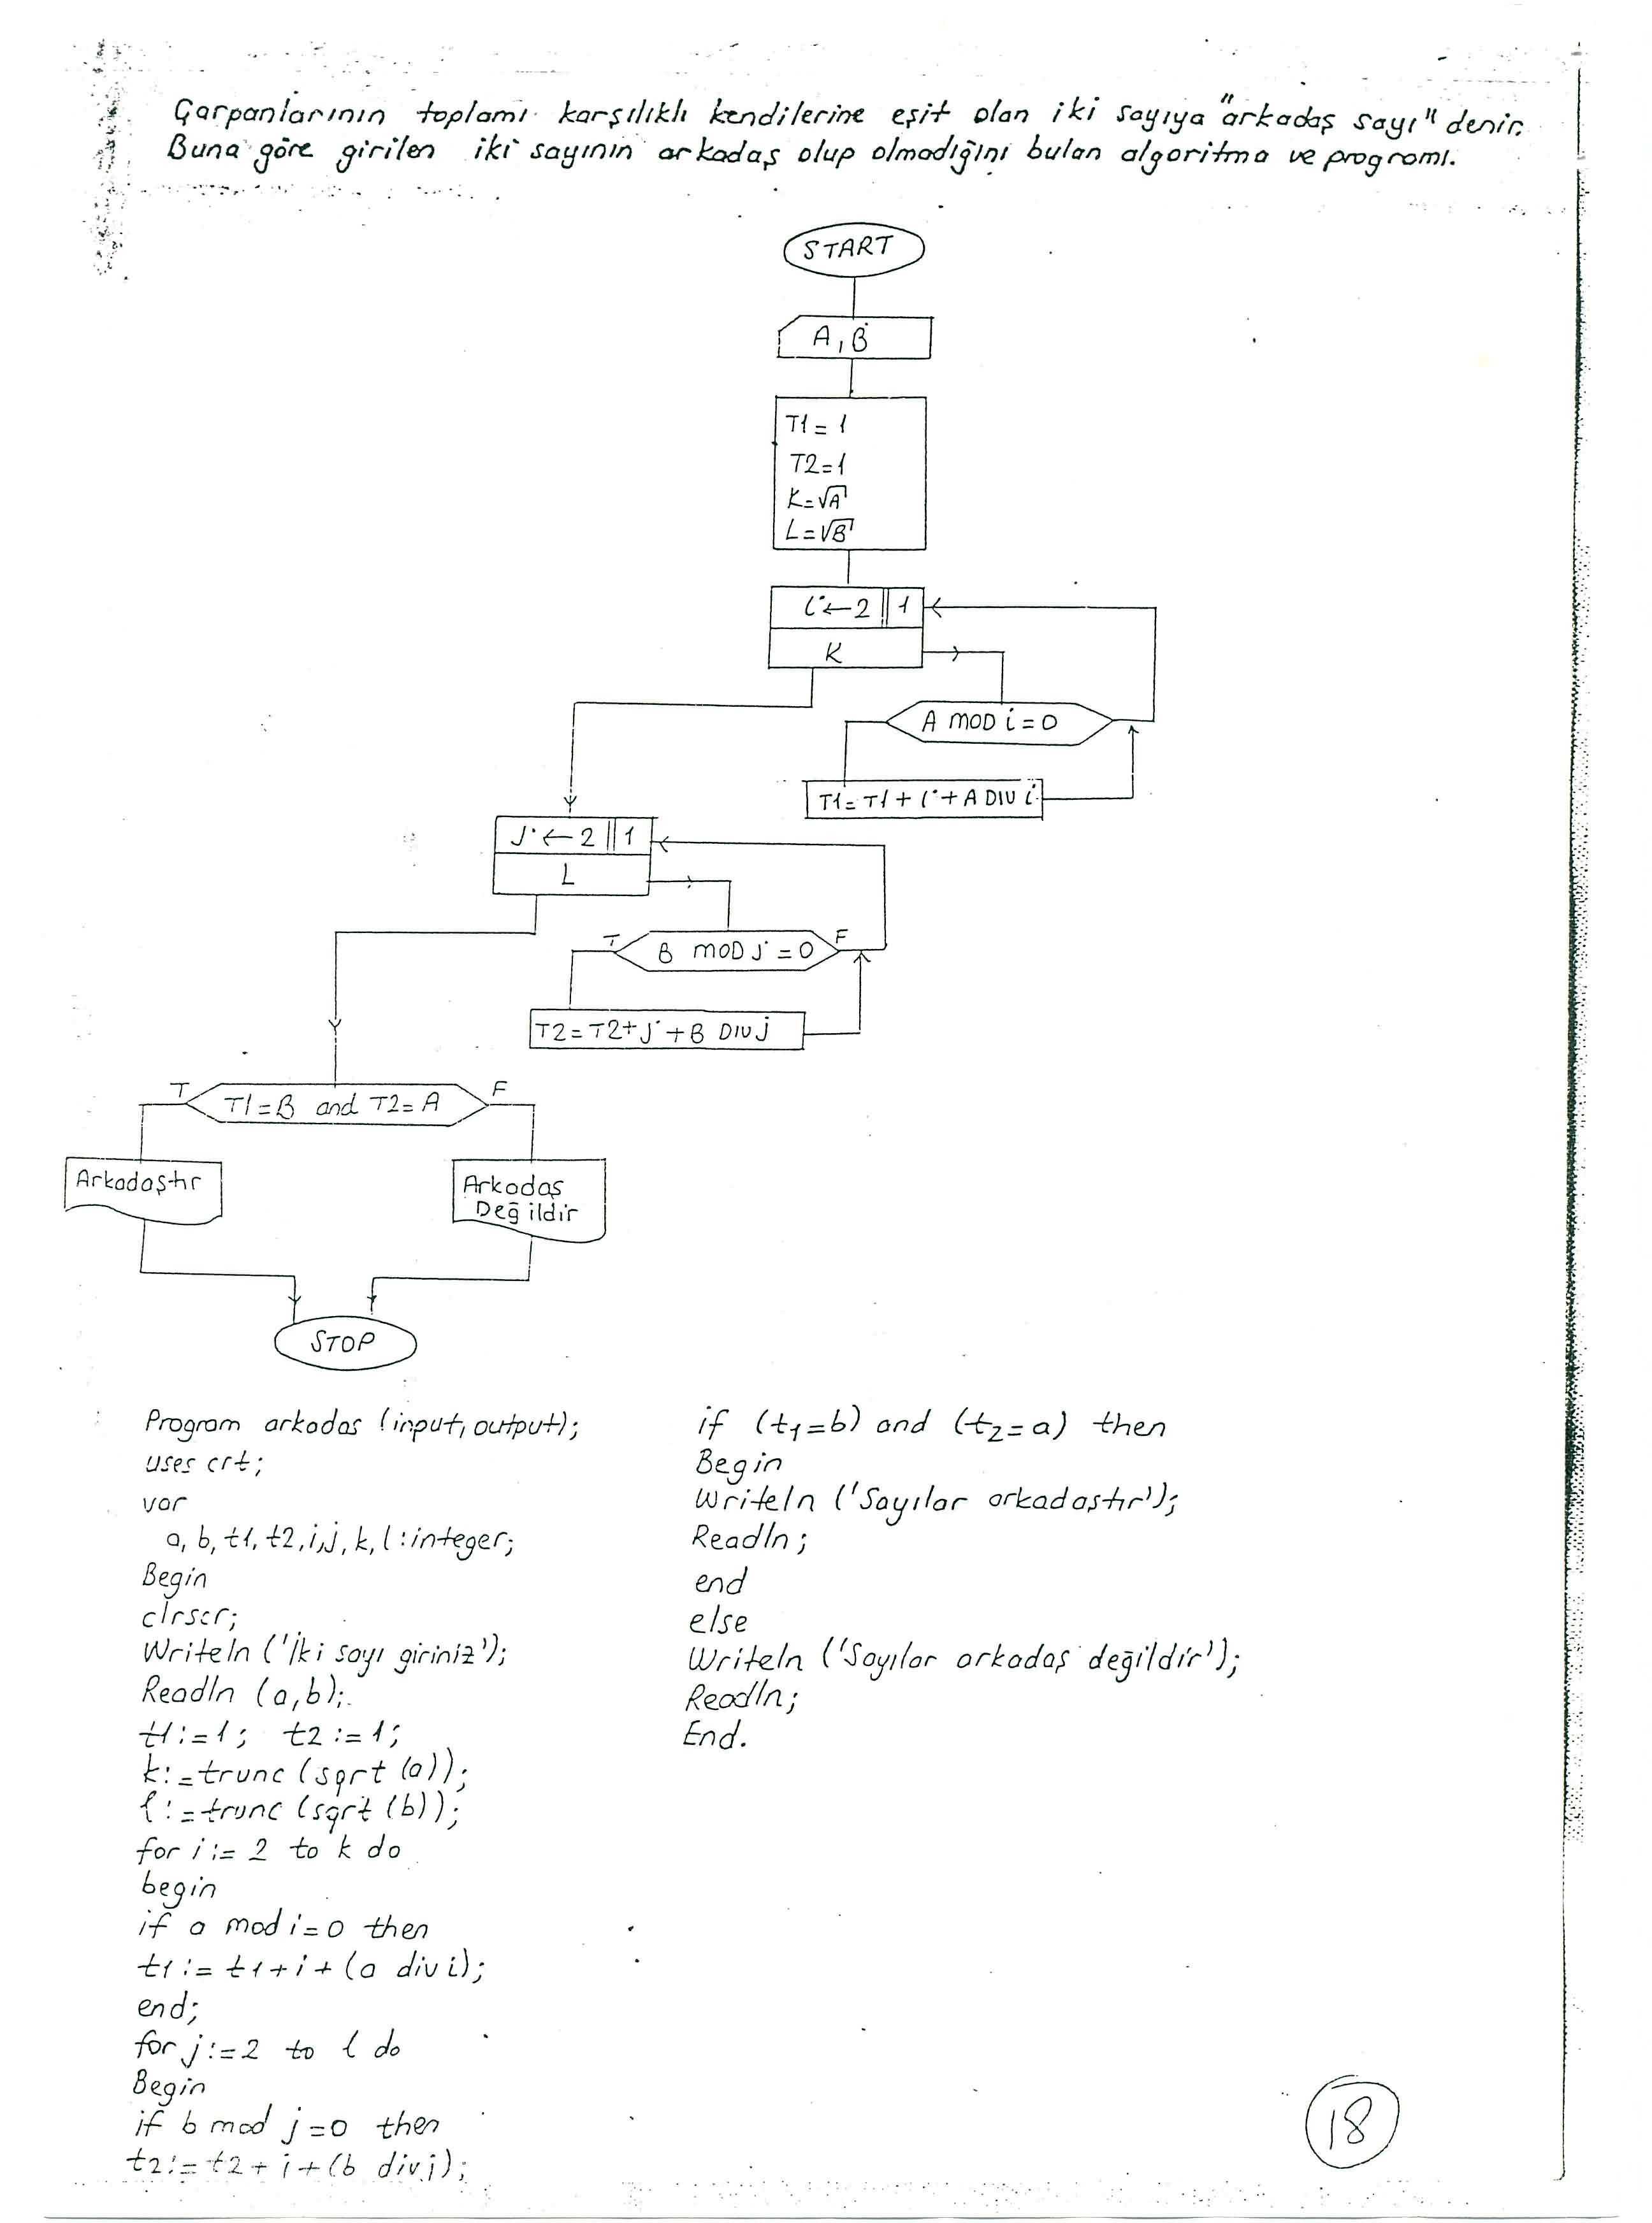 Çarpanlarının toplamı karşılıklı kendilerine eşit olan iki sayıya "arkadaş sayı" denir.
Buna göre girilen iki sayının arkadaş olup olmadığını bulan algoritma ve programı.
START
A, B
T1 = 1
T2 = 1
K = √A
L = √B
i ← 2 || 1
K
A MOD i = 0
T1 = T1 + i + A DIV i
J ← 2 || 1
L
T B MOD J = 0 F
T2 = T2 + J + B DIV j
T T1 = B and T2 = A F
Arkadaştır
Arkadaş
Değildir
STOP
Program arkadas (input, output);
uses crt;
var
a, b, t1, t2, i, j, k, l : integer;
Begin
clrscr;
Writeln ('İki sayı giriniz');
Readln (a,b);
t1 := 1; t2 := 1;
k := trunc (sqrt (a));
l := trunc (sqrt (b));
for i := 2 to k do
begin
if a mod i = 0 then
t1 := t1 + i + (a div i);
end;
for j := 2 to l do
Begin
if b mod j = 0 then
t2 := t2 + j + (b div j);
if (t1 = b) and (t2 = a) then
Begin
Writeln ('Sayılar arkadaştır');
Readln;
end
else
Writeln ('Sayılar arkadaş değildir');
Readln;
End.
18